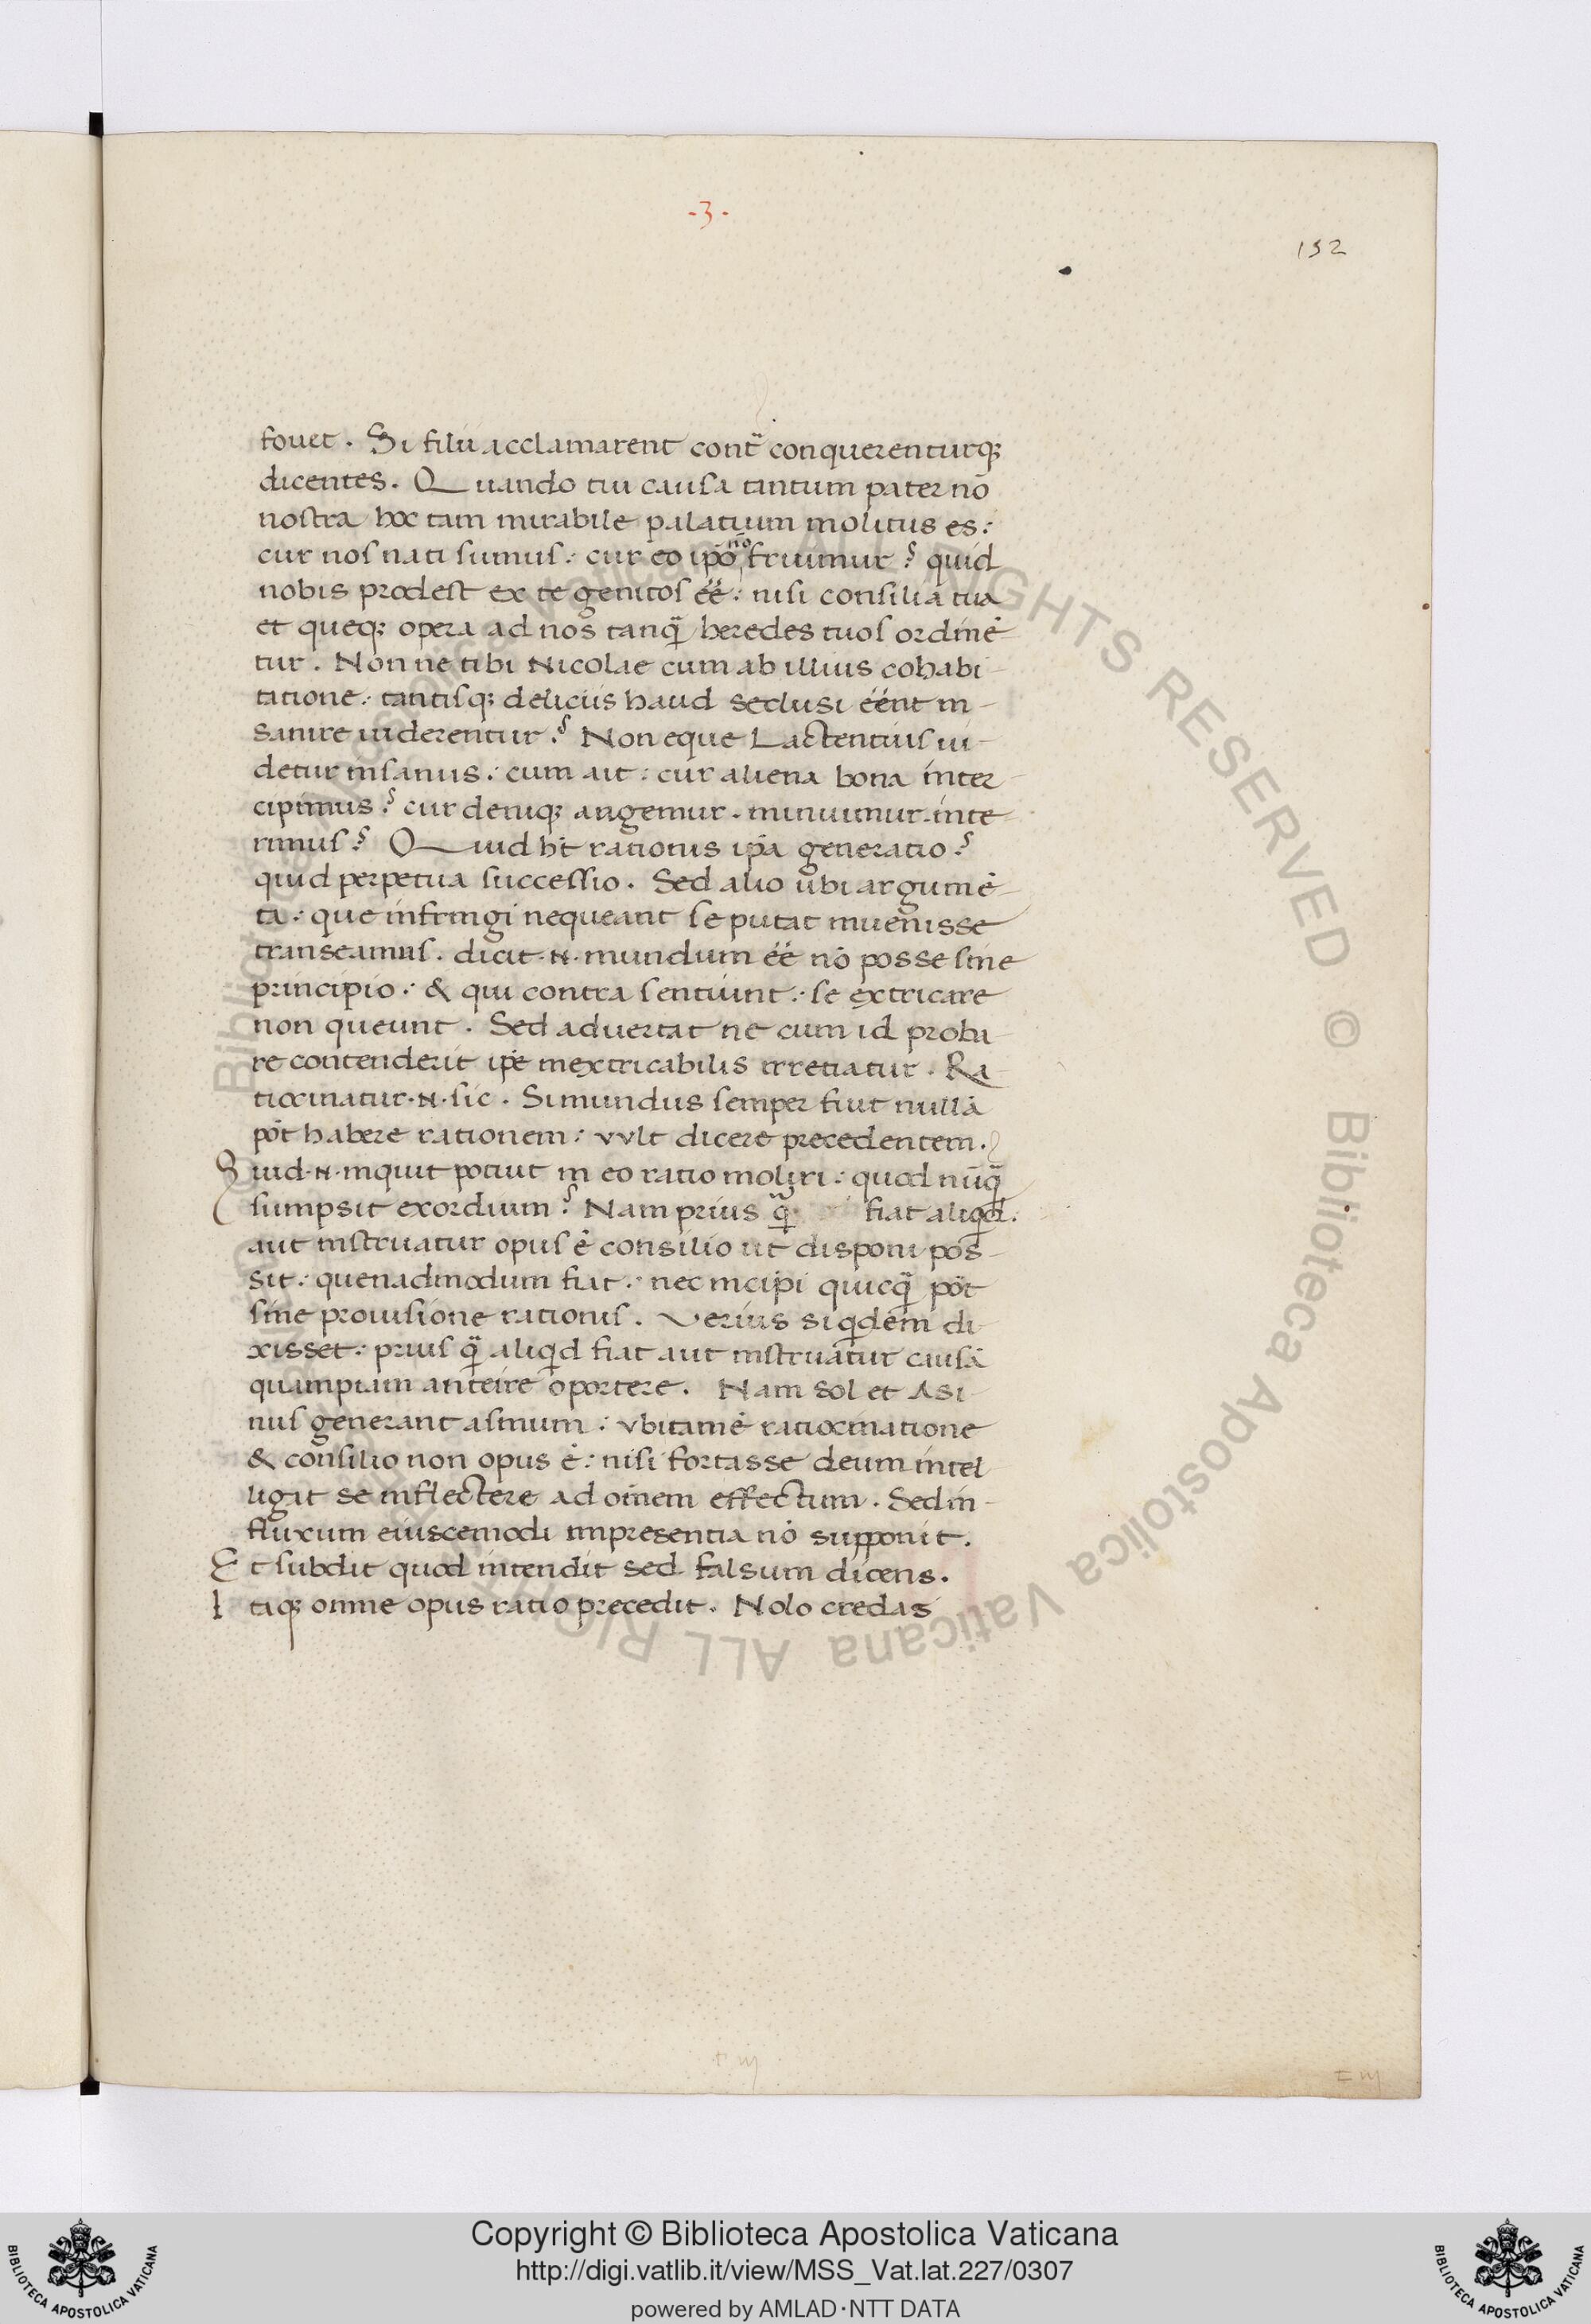 -3-
152
fouet. Si filii acclamarent cont̃ conquerenturq;
dicentes. Quando tui causa tantum pater nō
nostra hoc tam mirabile palatium molitus es:
cur nos nati sumus: cur eo ip̄o nō fruimur? quid
nobis prodest ex te genitos ēē: nisi consilia tua
et queq; opera ad nos tanq̄ heredes tuos ordinē
tur. Non ne tibi Nicolae cum ab illius cohabi-
tatione: tantisq; deliciis haud seclusi ēēnt in-
sanire uiderentur? Non eque Lactentius ui-
detur insanus: cum ait: cur aliena bona inter-
cipimus? cur deniq; angemur. minuimur. inte-
rimus? Quid ht̄ rationis ip̄a generatio?
quid perpetua successio. Sed alio ubi argumē-
ta: que infringi nequeant se putat inuenisse
transeamus. dicit .N. mundum ēē nō posse sine
principio: & qui contra sentiunt: se extricare
non queunt. Sed aduertat ne cum id proba-
re contenderit ip̄e inextricabilis irretiatur. Ra-
tiocinatur .N. sic. Si mundus semper fuit nullā
pōt habere rationem: vult dicere precedentem.
Quid .N. inquit potuit in eo ratio moliri: quod nūq̄
sumpsit exordium? Nam prius q̄ fiat aliqd.
aut instruatur opus ē consilio ut disponi pos-
sit: quenadmodum fiat: nec incipi quicq̄ pōt
sine prouisione rationis. Verius siqdem di-
xisset: prius q̄ aliqd fiat aut instruatur causā
quampiam anteire oportere. Nam sol et Asi-
nus generant asinum: vbi tamē ratiocinatione
& consilio non opus ē: nisi fortasse deum intel-
ligit se inflectere ad oīnem effectum. Sed in-
fluxum eiuscemodi inpresentia nō supponit.
Et subdit quod intendit sed falsum dicens.
Itaq; omne opus ratio precedit. Nolo credas
Copyright © Biblioteca Apostolica Vaticana
http://digi.vatlib.it/view/MSS_Vat.lat.227/0307
powered by AMLAD·NTT DATA